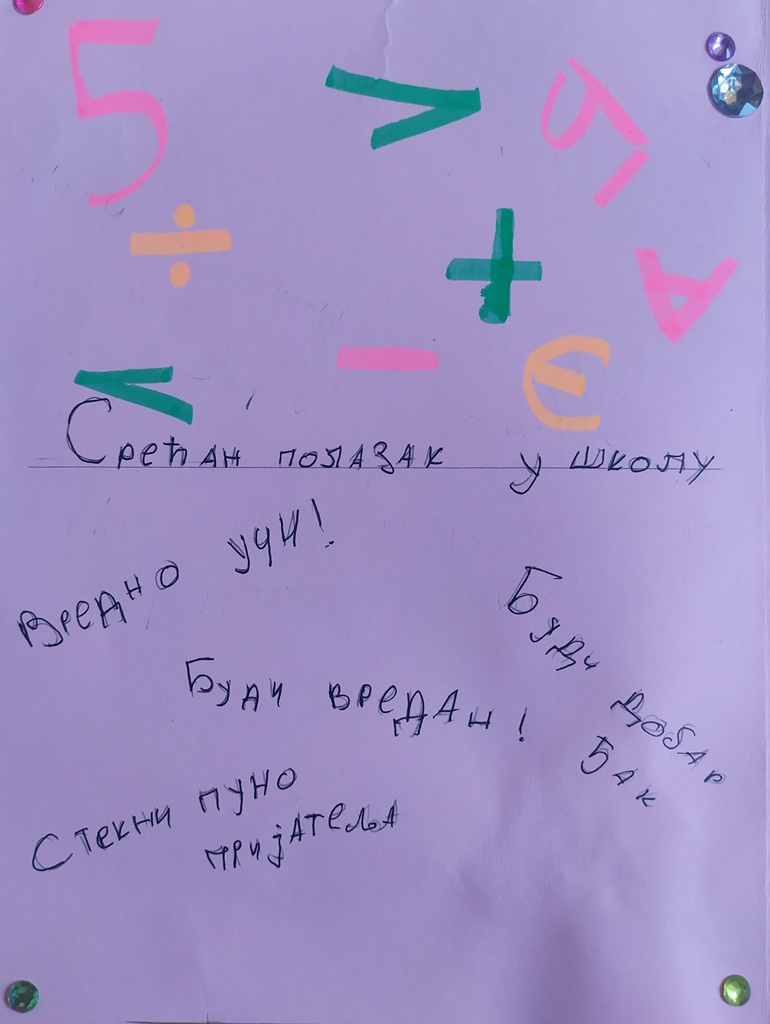 5 > 5
÷ + A
< - Э
Срећан полазак у школу
Вредно учи!
Буди добар
Ђак
Буди вредан!
Стекни пуно
пријатеља